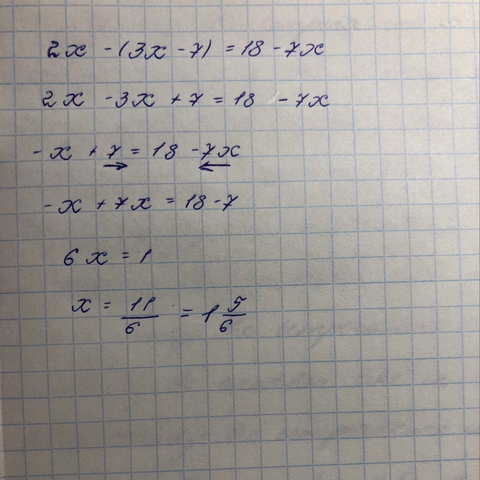 2x - (3x - 7) = 18 - 7x
2x - 3x + 7 = 18 - 7x
-x + 7 = 18 - 7x
-x + 7x = 18 - 7
6x = 1
x = 11/6 = 1 5/6